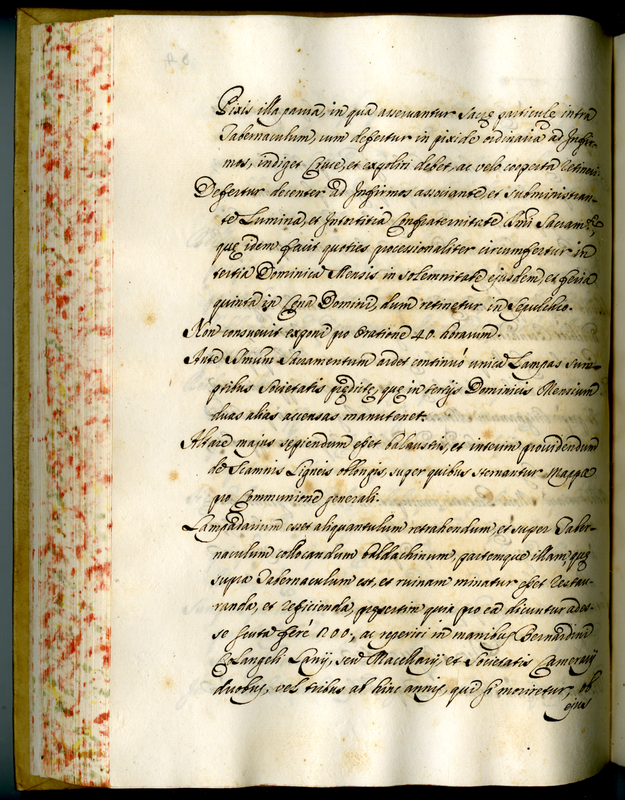 Pixis illa parva, in qua asservantur Sacrę particulę intra
Tabernaculum, cum defertur in pixide ordinaria ad Infir-
mos, indiget Cruce, et expoliri debet, ac velo cooperta retineri.
Defertur decenter ad Infirmos associante, et subministran-
te Lumina, et Intortitia Confraternitate SSmi Sacramti,
quę idem facit quoties processionaliter circumfertur in
tertia Dominica Mensis in solemnitate ejusdem, et feria
quinta in Cena Domini, dum retinetur in Sepulchro.
Non consuevit exponi pro Oratione 40. horarum.
Ante SSmum Sacramentum ardet continuò unica Lampas sum-
ptibus Societatis prędictę, quę in tertijs Dominicis Mensium
duas alias accensas manutenet.
Altare majus sepiendum esset balaustris, et interim providendum
de Scamnis Ligneis oblongis, super quibus sternantur Mappę
pro Communione generali.
Lampadarium esset aliquantulum retrahendum, et super Taber-
naculum collocandum baldachinum, partemque illam, quę
supra Tabernaculum est, et ruinam minatur esset restau-
randa, et reficienda, pręsertim quia pro ea dicuntur ades-
se scuta ferè 200., ac reperiri in manibus Bernardini
Colangeli Lanij, seu Macellarij, et Societatis Camerarij
duobus, vel tribus ab hinc annis, qui si moriretur, ob
ejus